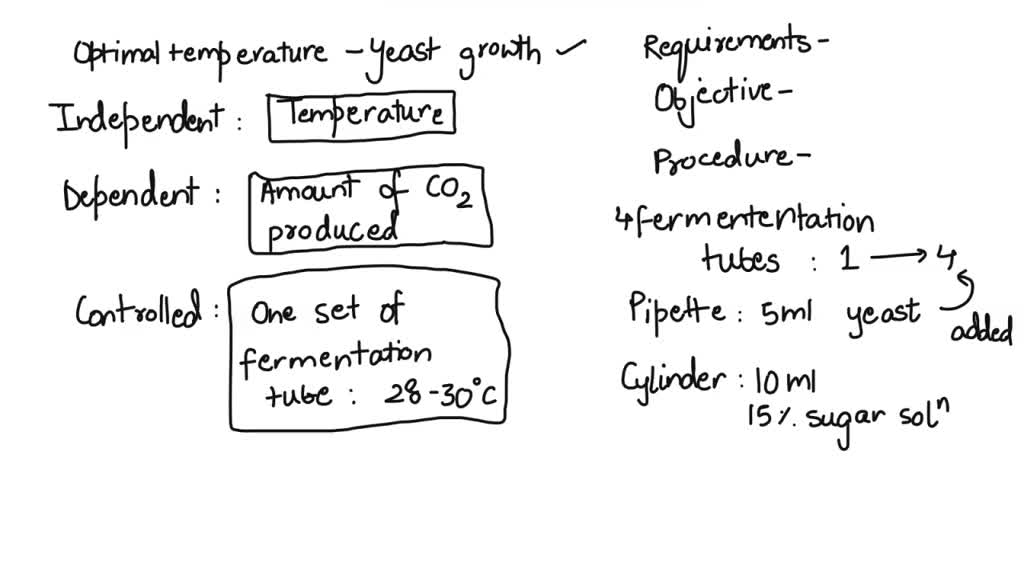 Optimal temperature - yeast growth ✓
Independent : Temperature
Dependent : Amount of CO₂
produced
Controlled : One set of
fermentation
tube : 28-30°C
Requirements -
Objective -
Procedure -
4 fermententation
tubes : 1 → 4
Pipette : 5ml yeast
added
Cylinder : 10 ml
15% sugar solⁿ